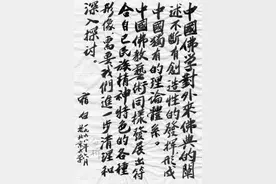 中國佛學對外來佛典的闡
述不斷有創造性的發揮形成
中國獨有的理論體系。
中國佛教藝術同樣發展出符
合自己民族精神特色的各種
形像需要我們進一步清理和
深入探討。
宿白